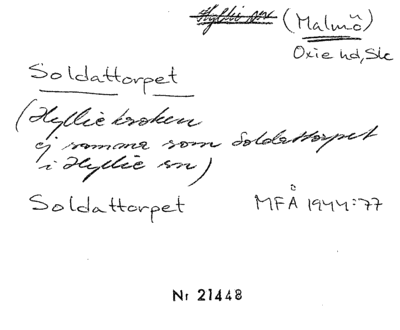 Hyllie sn (Malmö)
Oxie hd, Sk
Soldattorpet
(Hylliekroken
ej samma som Soldattorpet
i Hyllie sn)
Soldattorpet MFÅ 1944:77
Nr 21448